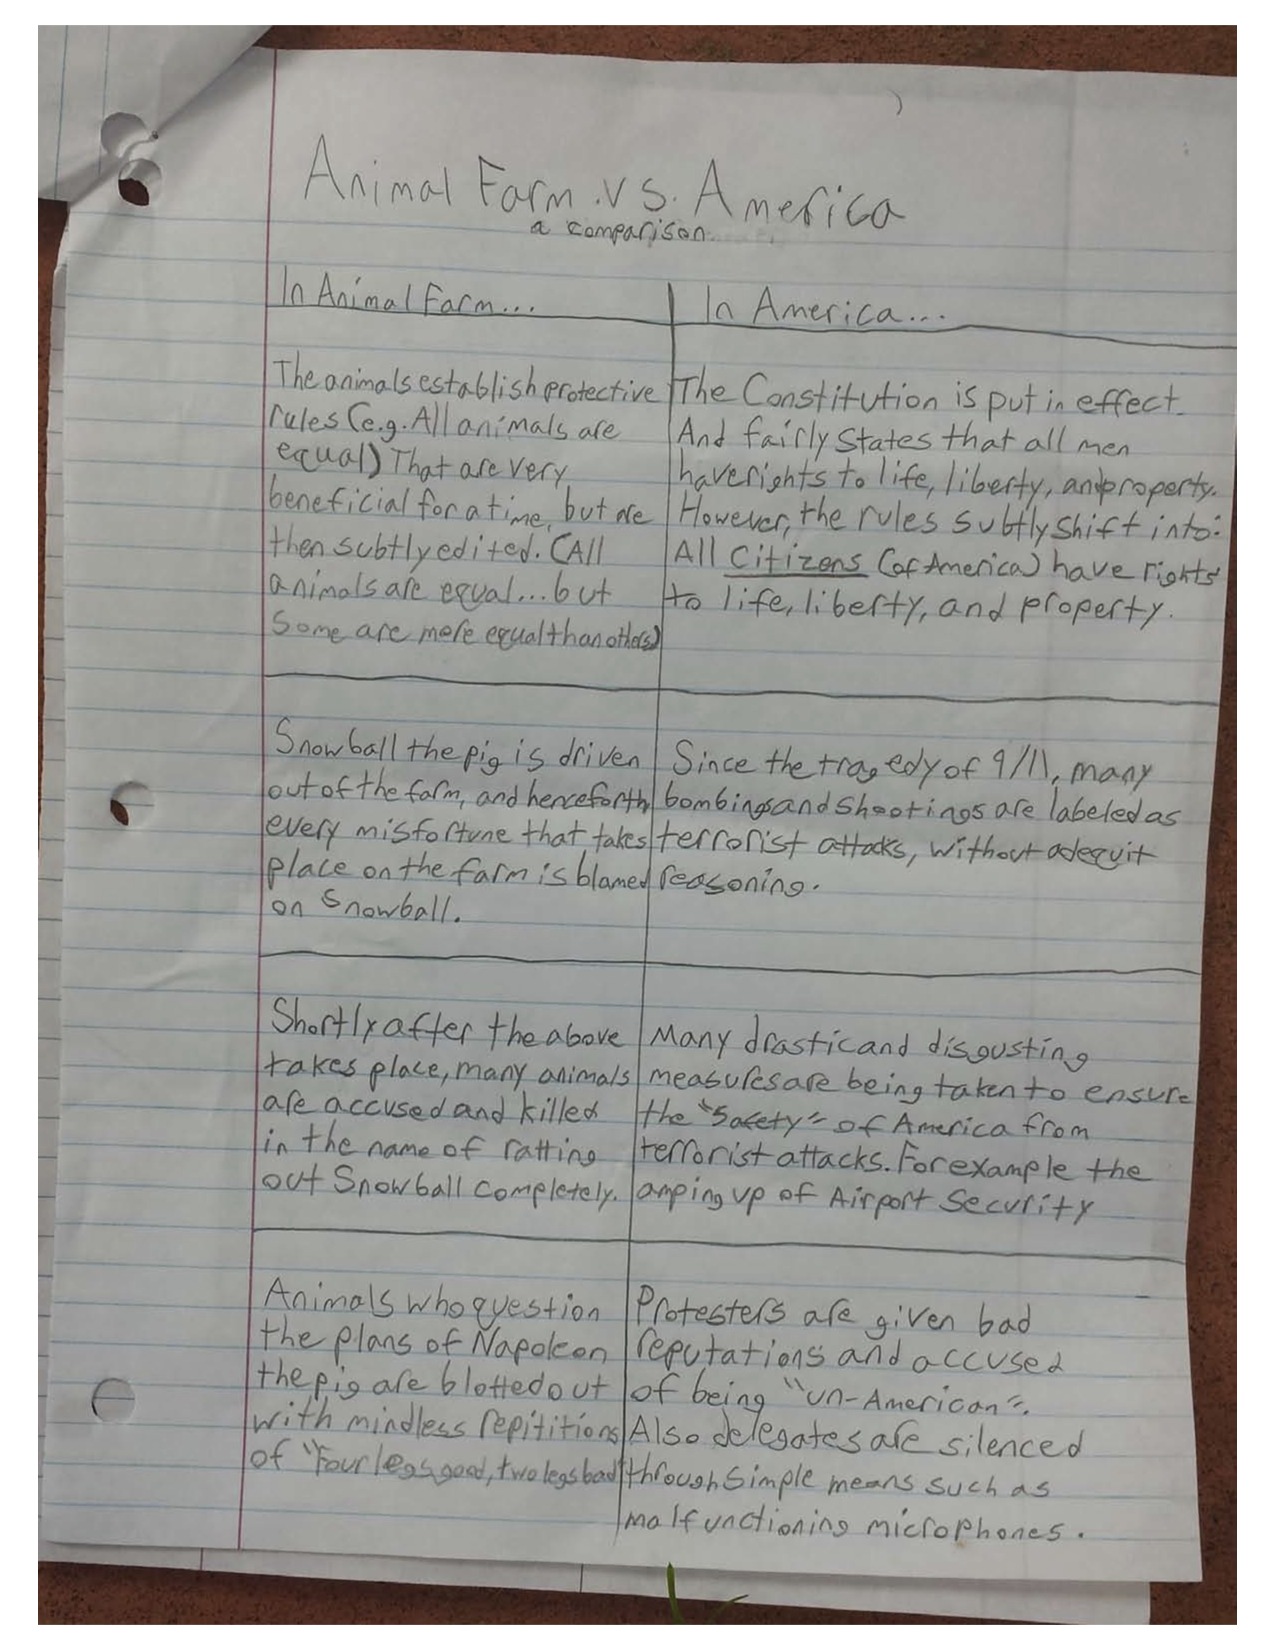 Animal Farm .vs. America
a comparison
In Animal Farm...
In America...
The animals establish protective
rules (e.g. All animals are
equal) That are very
beneficial for a time, but are
then subtly edited. (All
animals are equal... but
Some are more equal than others)
The Constitution is put in effect.
And fairly States that all men
have rights to life, liberty, and property.
However, the rules subtly shift into:
All Citizens (of America) have rights
to life, liberty, and property.
Snowball the pig is driven
out of the farm, and henceforth
every misfortune that takes
place on the farm is blamed
on Snowball.
Since the tragedy of 9/11, many
bombings and shootings are labeled as
terrorist attacks, without adequit
reasoning.
Shortly after the above
takes place, many animals
are accused and killed
in the name of ratting
out Snowball completely.
Many drastic and disgusting
measures are being taken to ensure
the "Safety" of America from
terrorist attacks. For example the
amping up of Airport Security
Animals who question
the plans of Napoleon
the pig are blotted out
with mindless repititions
of "Four legs good, two legs bad"
Protesters are given bad
reputations and accused
of being "un-American".
Also delegates are silenced
through simple means such as
malfunctioning microphones.